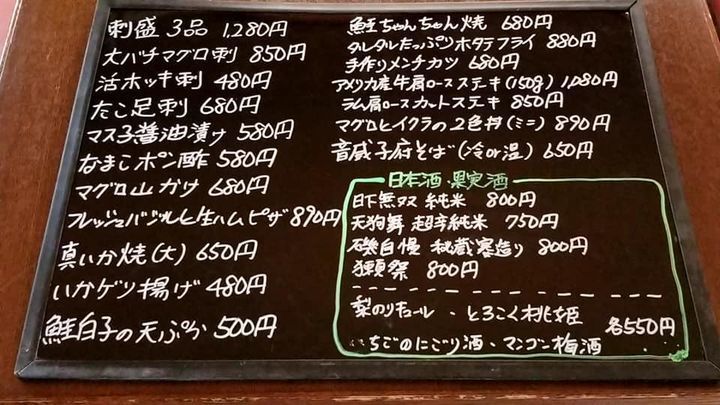 刺盛3品 1,280円
大バチマグロ刺 850円
活ホッキ刺 480円
たこ足刺 680円
マス子醤油漬け 580円
なまこポン酢 580円
マグロ山かけ 680円
フレッシュバジルと生ハムピザ 890円
真いか焼(大) 650円
いかゲソ揚げ 480円
鮭白子の天ぷら 500円
鮭ちゃんちゃん焼 680円
タルタルたっぷりホタテフライ 880円
手作りメンチカツ 680円
アメリカ産牛肩ロースステーキ(150g) 1,080円
ラム肩ロースカットステーキ 850円
マグロとイクラの2色丼(ミニ) 890円
音威子府そば(冷or温) 650円
日本酒・果実酒
日下無双 純米 800円
天狗舞 超辛純米 750円
磯自慢 秘蔵寒造り 800円
獺祭 800円
梨のリキュール・とろこく桃姫
各550円
いちごのにごり酒・マンゴー梅酒